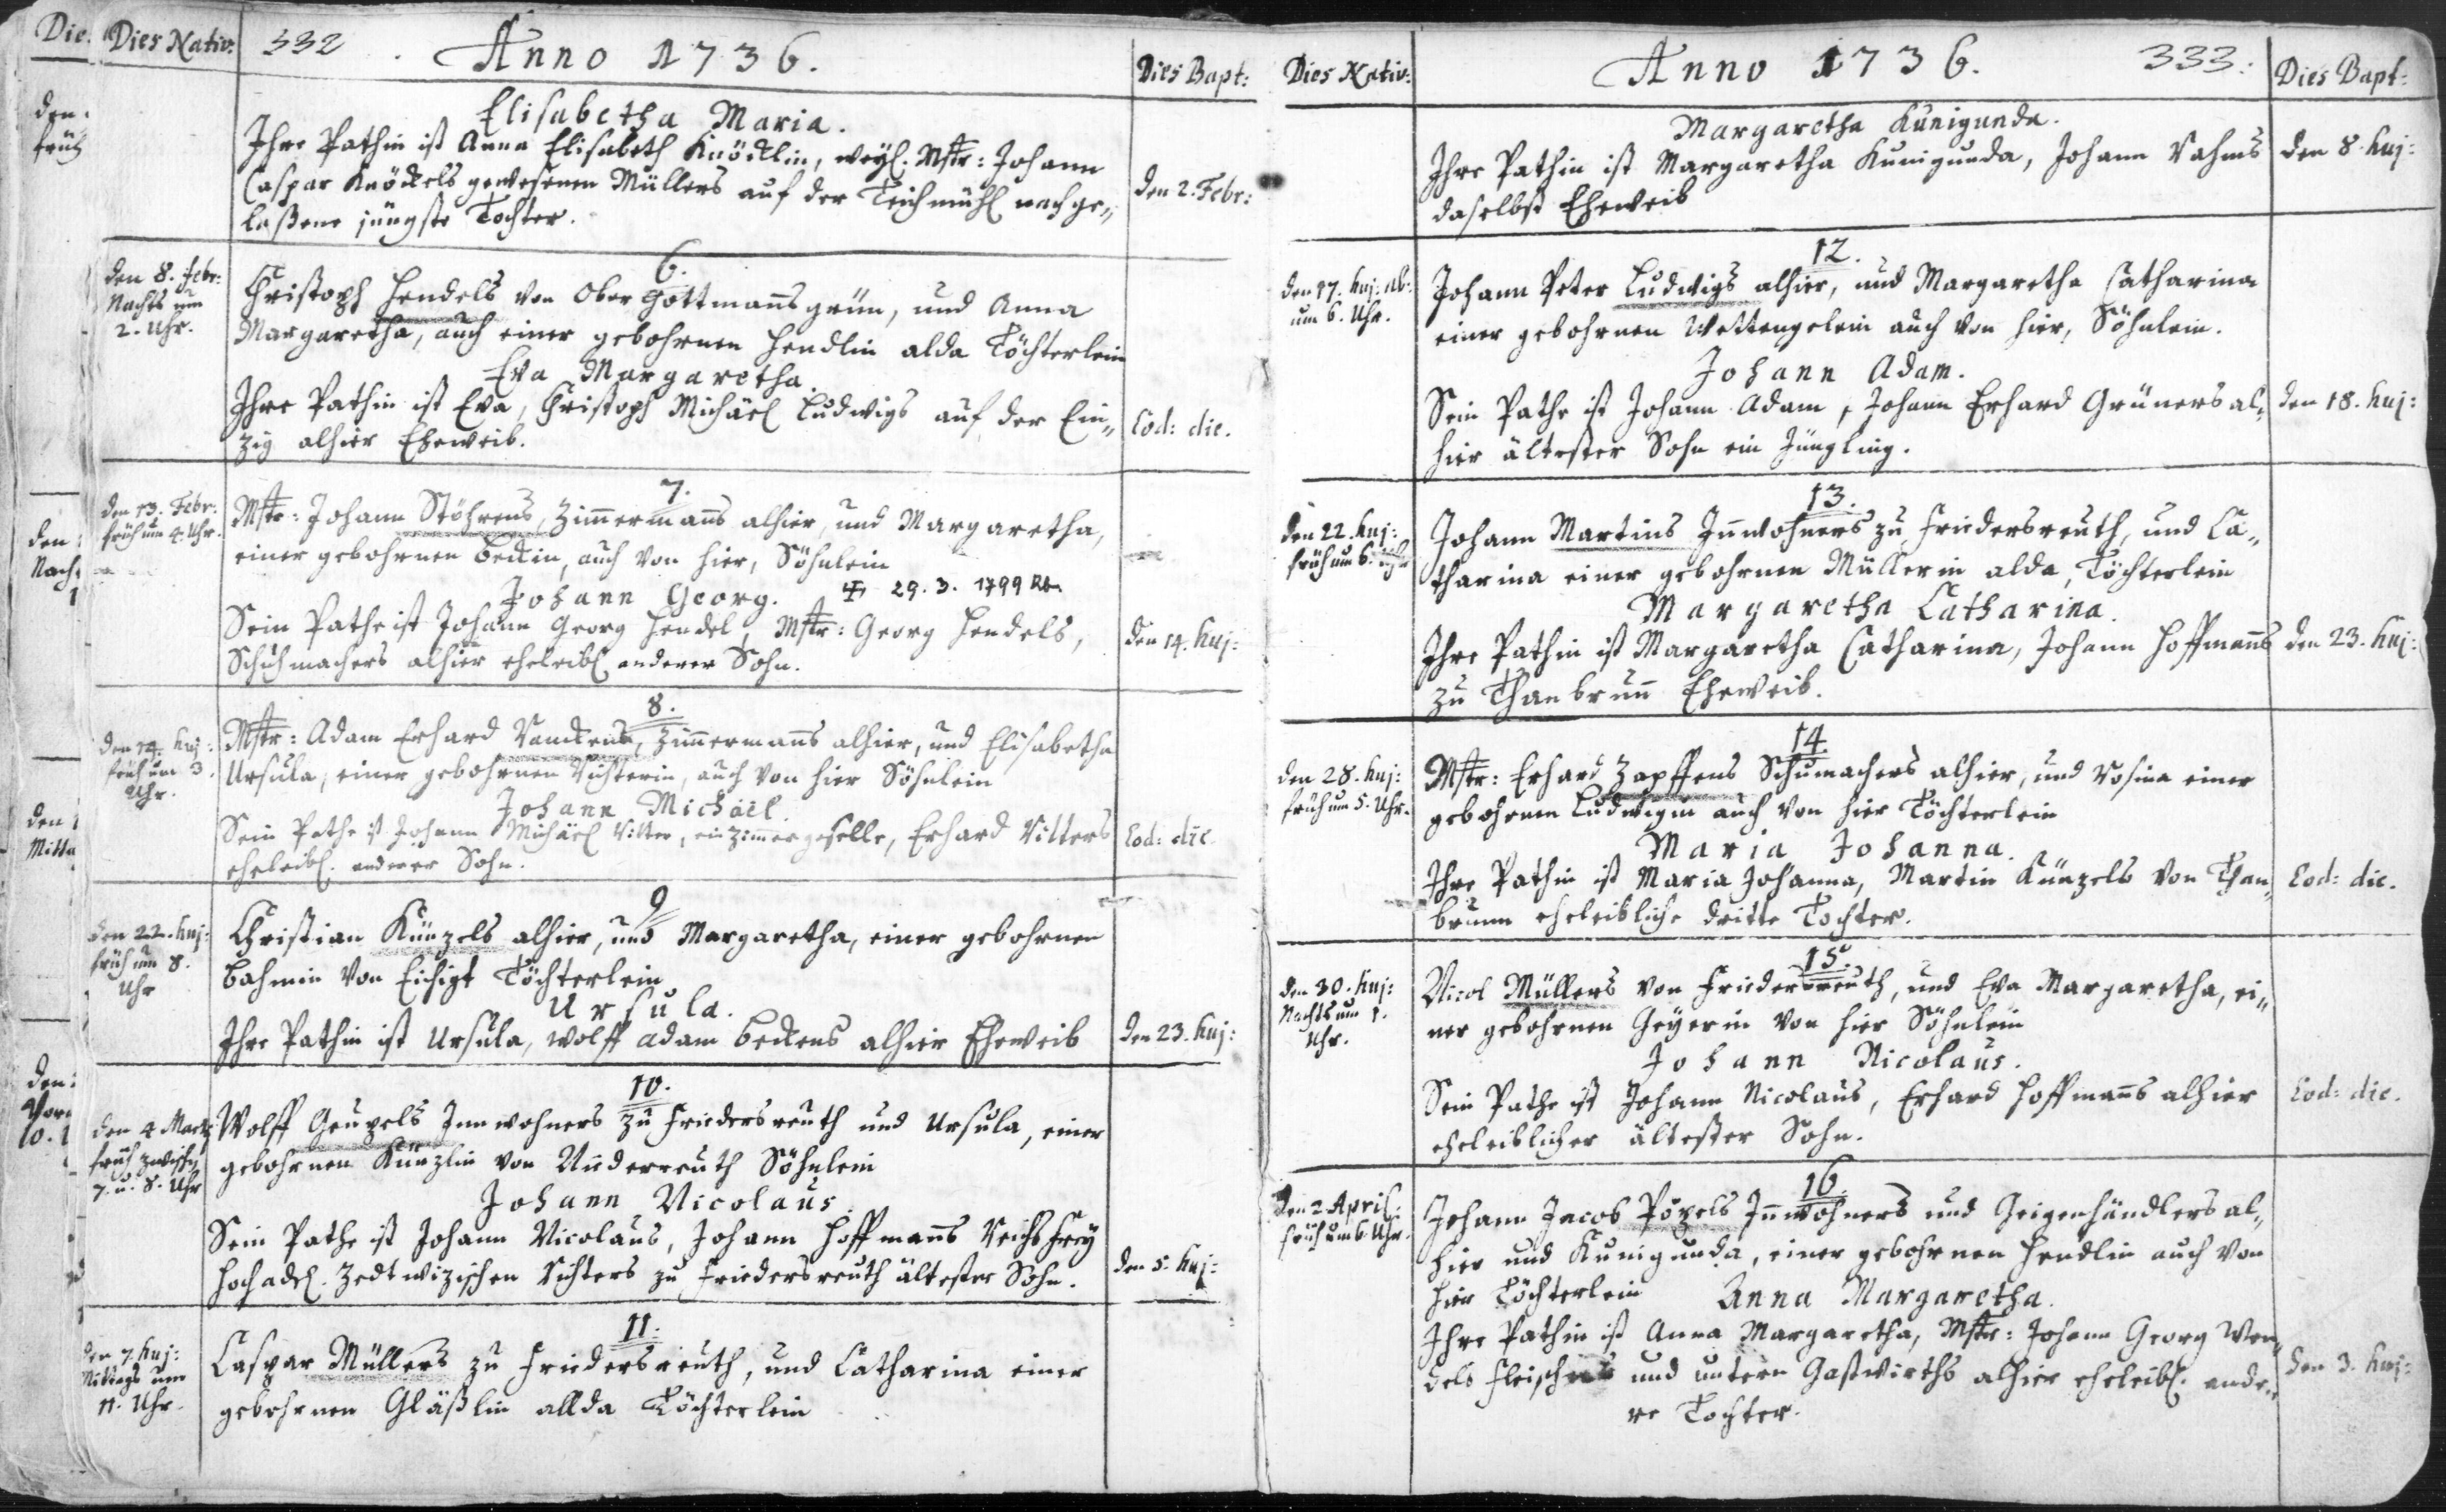 Die.
den.
früh
den
Nach
den
Mitta
den
Vorm
10.
Dies Nativ:
332
Anno 1736.
Dies Bapt:
Elisabetha Maria.
Ihre Pathin ist Anna Elisabeth Knöcklin, weyl. Mstr: Johann
Caspar Knöckels gewesenen Müllers auf der Teichmühl nachge„
laßene jüngste Tochter.
den 2. Febr:
6.
den 8. Febr:
Nachts um
2. Uhr.
Christoph Hendels von Ober Gottmanns grün, und Anna
Margaretha, auch einer gebohrnen Hendlin alda Töchterlein
Eva Margaretha.
Ihre Pathin ist Eva, Christoph Michäel Ludwigs auf der Ein„
zig alhier Eheweib.
Eod: die.
7.
den 13. Febr:
früh um 4. Uhr.
Mstr: Johann Stöhrens, Zimmermanns alhier, und Margaretha,
einer gebohrnen Beckin, auch von hier, Söhnlein
Johann Georg. 29. 3. 1799
Sein Pathe ist Johann Georg Hendel, Mstr: Georg Hendels,
Schuhmachers alhier eheleibl. anderer Sohn.
den 14. huj:
8.
den 14. huj:
früh um 3.
Uhr.
Mstr: Adam Erhard Zimmermanns alhier, und Elisabetha
Ursula, einer gebohrnen Richterin, auch von hier Söhnlein
Johann Michäel.
Sein Pathe ist Johann Michäel Ritter, ein Zimmergeselle, Erhard Ritters
eheleibl. anderer Sohn.
Eod: die
9
den 22. huj:
früh um 8.
Uhr
Christian Künzels alhier, und Margaretha, einer gebohrnen
von Eichigt Töchterlein
Ursula.
Ihre Pathin ist Ursula, Wolff Adam Beckens alhier Eheweib
den 23. huj:
10.
den 4 Mart:
früh zwischen
7. u. 8. Uhr
Wolff Geupels Innwohners zu Friedersreuth und Ursula, einer
gebohrnen Künzlin von Niederreuth Söhnlein
Johann Nicolaus.
Sein Pathe ist Johann Nicolaus, Johann Hoffmanns Reichs Frey
Hochadel. Zedtwizischen Richters zu Friedersreuth ältester Sohn.
den 5. huj:
11.
den 7. huj:
Mittags um
11. Uhr.
Caspar Müllers zu Friedersreuth, und Catharina einer
gebohrnen Gläßlin allda Töchterlein
Dies Nativ:
Anno 1736.
333:
Dies Bapt:
Margaretha Kunigunda.
Ihre Pathin ist Margaretha Kunigunda, Johann Rahms
daselbst Eheweib
den 8. huj:
12.
den 17. huj: ab:
um 6. Uhr.
Johann Peter Ludwigs alhier, und Margaretha Catharina
einer gebohrnen Wettengelein auch von hier, Söhnlein.
Johann Adam.
Sein Pathe ist Johann Adam, Johann Erhard Grüners al„
hier ältester Sohn ein Jüngling.
den 18. huj:
13.
den 22. huj:
früh um 6. Uhr
Johann Martins Innwohners zu Friedersreuth, und Ca„
tharina einer gebohrnen Müllerin alda, Töchterlein
Margaretha Catharina.
Ihre Pathin ist Margaretha Catharina, Johann Hoffmanns
zu Thanbrunn Eheweib.
den 23. huj:
14.
den 28. huj:
früh um 5. Uhr.
Mstr: Erhard Zapffens Schumachers alhier, und Rosina einer
gebohrnen Ludwigin auch von hier Töchterlein
Maria Johanna.
Ihre Pathin ist Maria Johanna, Martin Künzels von Than„
brunn eheleibliche dritte Tochter.
Eod: die.
15.
den 30. huj:
Nachts um 1.
Uhr.
Nicol Müllers von Friedersreuth, und Eva Margaretha, ei„
ner gebohrnen Geyerin von hier Söhnlein
Johann Nicolaus.
Sein Pathe ist Johann Nicolaus, Erhard Hoffmanns alhier
eheleiblicher ältester Sohn.
Eod: die.
16.
den 2. April:
früh um 6 Uhr.
Johann Jacob Pözels Innwohners und Geigenhändlers al„
hier und Kunigunda, einer gebohrnen Hendlin auch von
hier Töchterlein Anna Margaretha.
Ihre Pathin ist Anna Margaretha, Mstr: Johann Georg Wen„
dels Fleischers und untern Gastwirths alhier eheleibl. ande„
re Tochter.
den 3. huj: